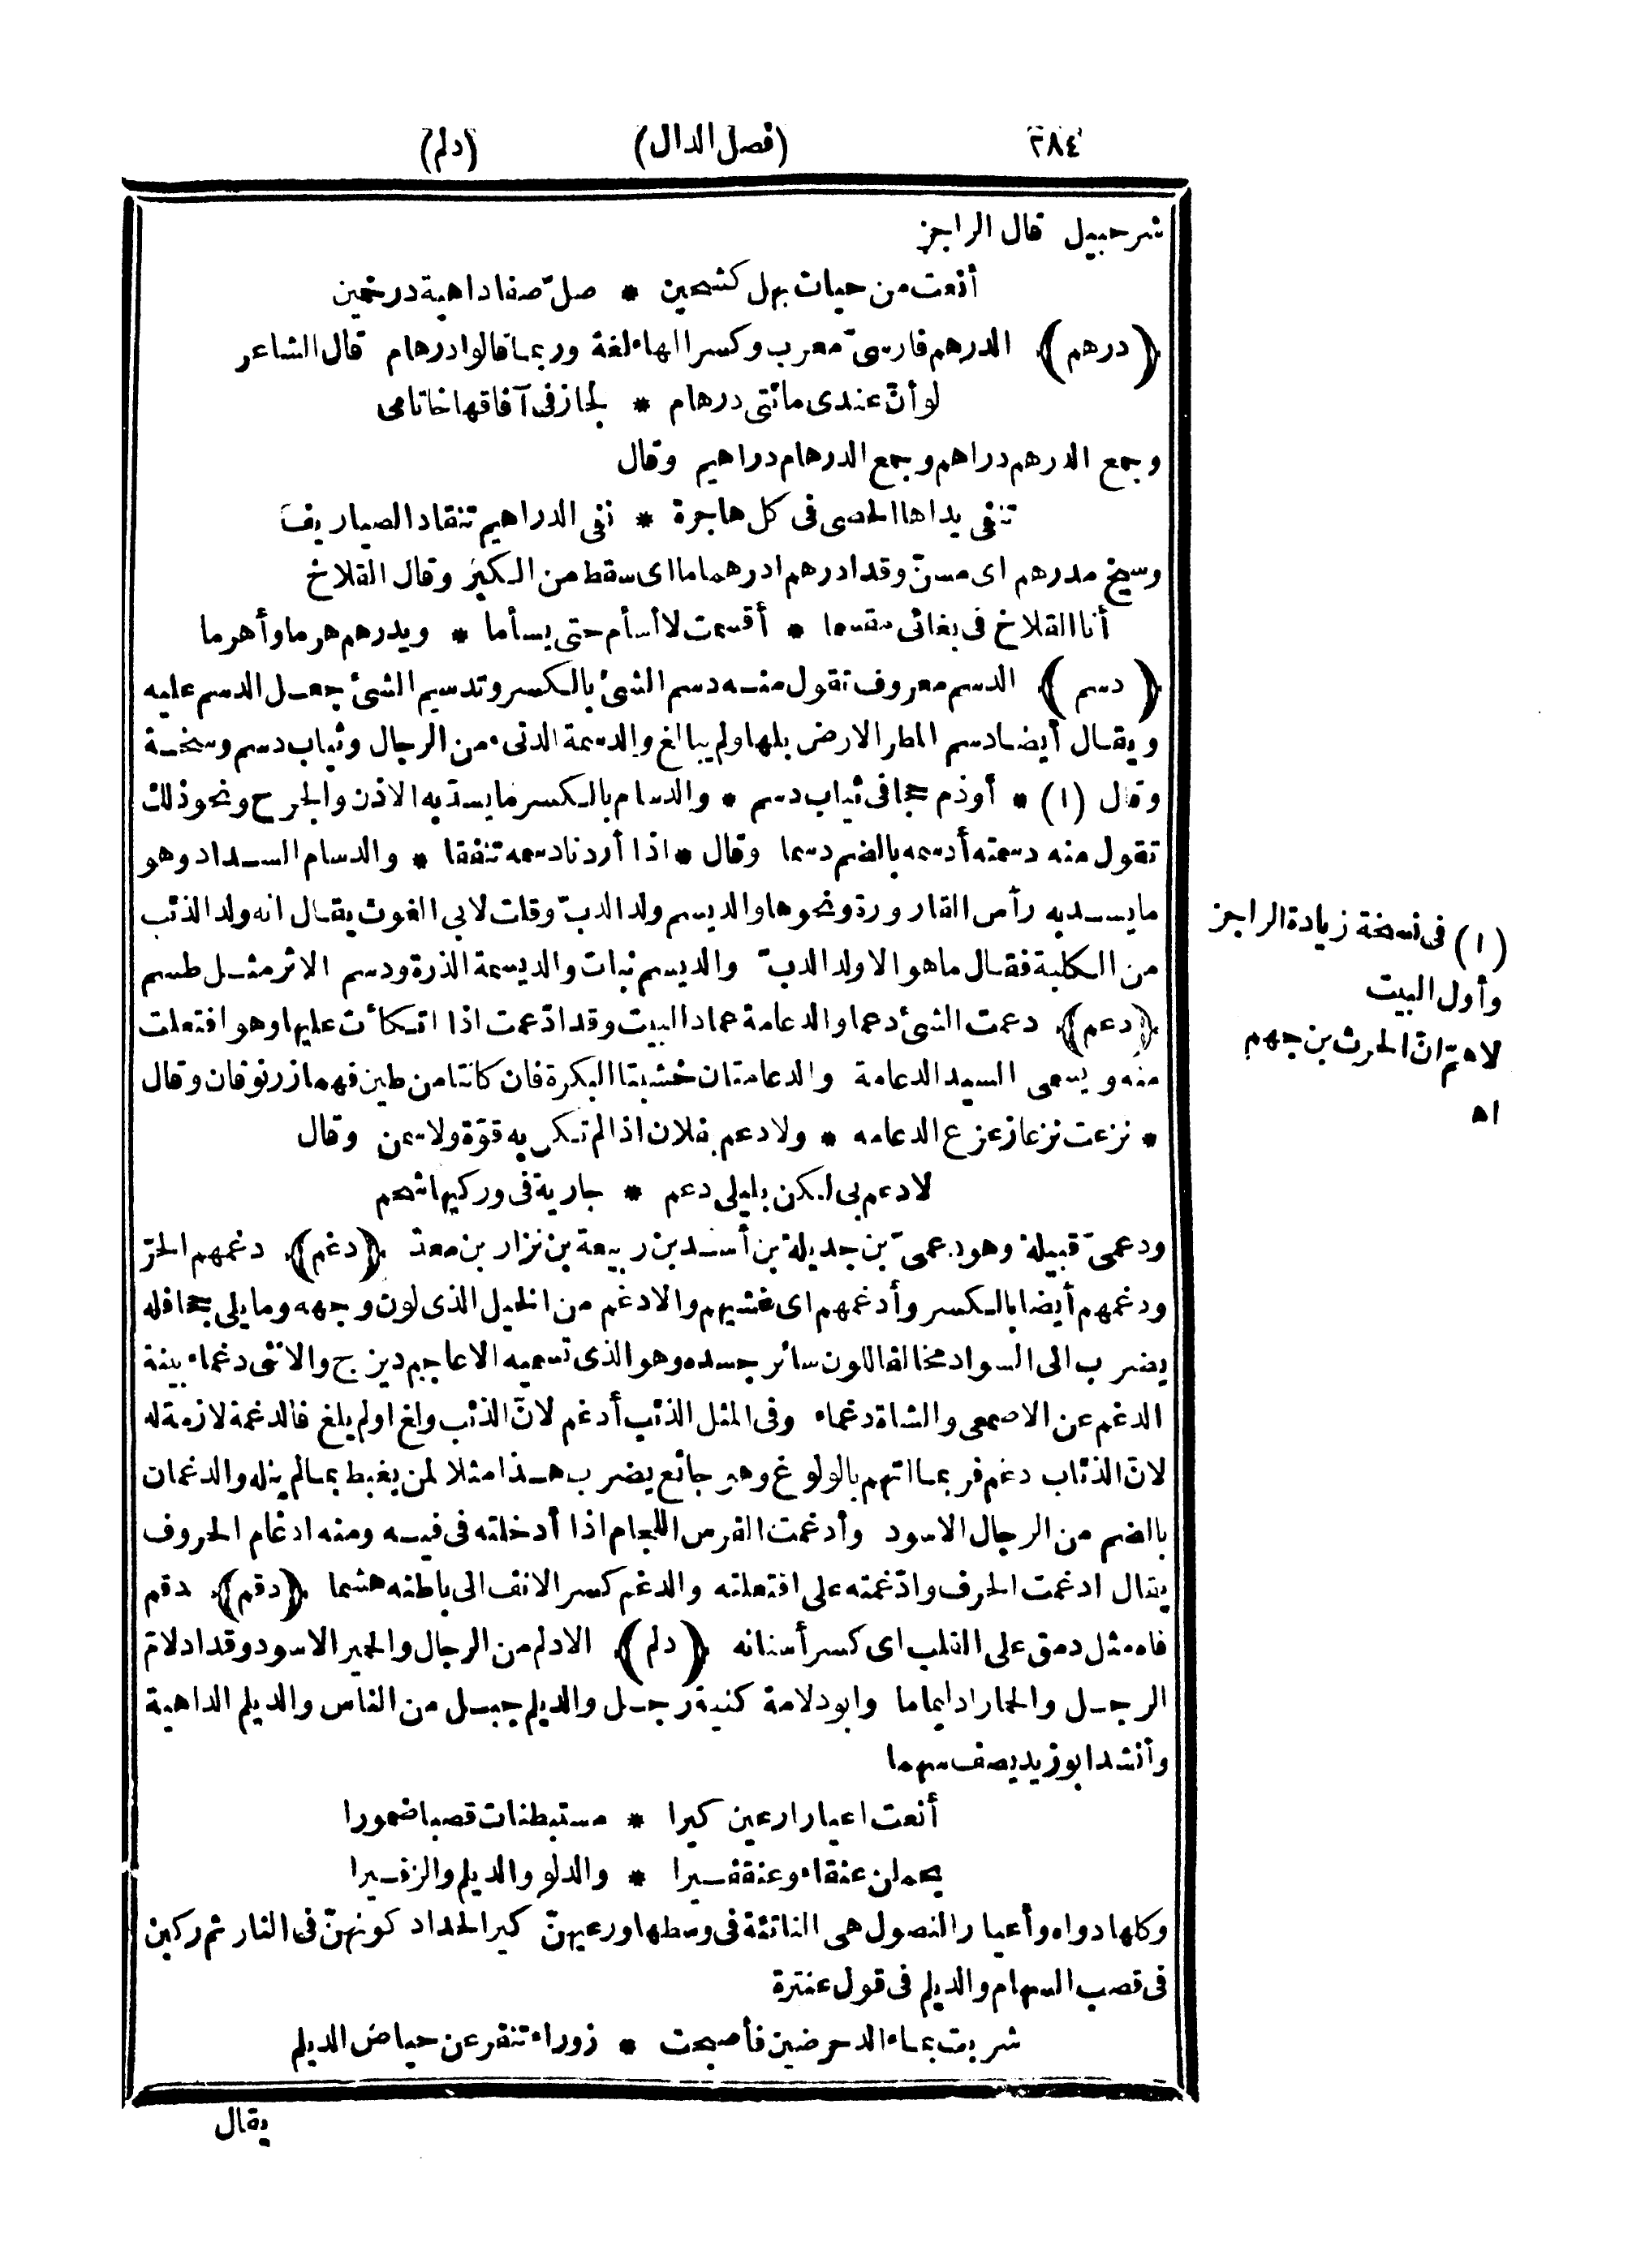 ٢٨٤ (فصل الدال) (دلم)
شرحبيل قال الراجز
أنعت من حيات بهل كشحين * صلّ صفا داهية درخمين
﴿درهم﴾ الدرهم فارسىّ معرب وكسر الهاء لغة وربما قالوا درهام قال الشاعر
لو أنّ عندى مائتى درهام * لجاز فى آفاقها خاتامى
وجمع الدرهم دراهم وجمع الدرهام دراهيم وقال
تنفى يداها الحصى فى كل هاجرة * نفى الدراهيم تنقاد الصياريف
وسيخ مدرهم اى مسنّ وقد ادرهم ادرهماما اى سقط من الكبر وقال القلاخ
أنا القلاخ فى بغائى مقسما * أقسمت لا أسأم حتى يسأما * ويدرهم هرما وأهرما
﴿دسم﴾ الدسم معروف تقول منه دسم الشئ بالكسر وتدسيم الشئ جعل الدسم عليه
ويقال أيضا دسم المطر الارض بلها ولم يبالغ والدسمة الدنىء من الرجال وثياب دسم وسخة
وقال (١) * أوذم حجا فى ثياب دسم * والدسام بالكسر ما يسدّ به الاذن والجرح ونحو ذلك
تقول منه دسمته أدسمه بالضم دسما وقال * اذا أردنا دسمه تنفقا * والدسام السداد وهو
ما يسد به رأس القارورة ونحوها والديسم ولد الدبّ وقلت لابي الغوث يقال انه ولد الذئب
من الكلبة فقال ما هو الا ولد الدبّ والديسم نبات والديسمة الذرة ودسم الاثر مثل طسم
﴿دعم﴾ دعمت الشئ دعما والدعامة عماد البيت وقد ادّعمت اذا اتكأت عليها وهو افتعلت
منه ويسمى السيد الدعامة والدعامتان خشبتا البكرة فان كانتا من طين فهما زرنوقان وقال
* نزعت نزعا زعزع الدعامه * ولا دعم بفلان اذا لم تكن به قوّة ولا سمن وقال
لا دعم بى لكن بليلى دعم * جارية فى وركيها شحم
ودعمىّ قبيلة وهو دعمىّ بن جديلة بن أسد بن ربيعة بن نزار بن معدّ ﴿دغم﴾ دغمهم الحرّ
ودغمهم أيضا بالكسر وأدغمهم اى غشيهم والادغم من الخيل الذى لون وجهه وما يلى جحافله
يضرب الى السواد مخالفا للون سائر جسده وهو الذى تسميه الاعاجم ديزج والانثى دغماء بينة
الدغم عن الاصمعى والشاة دغماء وفى المثل الذئب أدغم لانّ الذئب ولغ او لم يلغ فالدغمة لازمة له
لانّ الذئاب دغم فربما اتهم بالولوغ وهو جائع يضرب هذا مثلا لمن يغبط بما لم ينله والدغمان
بالضم من الرجال الاسود وأدغمت الفرس اللجام اذا أدخلته فى فيه ومنه ادغام الحروف
يقال ادغمت الحرف وادّغمته على افتعلته والدغم كسر الانف الى باطنه هشما ﴿دقم﴾ دقم
فاه مثل دمق على القلب اى كسر أسنانه ﴿دلم﴾ الادلم من الرجال والحمير الاسود وقد ادلامّ
الرجل والحمار ادليماما وابو دلامة كنية رجل والديلم جيل من الناس والديلم الداهية
وأنشد ابو زيد يصف سهما
أنعت اعيارا رعين كيرا * مستبطنات قصبا ضمورا
يحملن عنقاء وعنقفيرا * والدلو والديلم والزفيرا
وكلها دواه وأعيار النصول هى الناتئة فى وسطها ورعيهنّ كير الحداد كونهنّ فى النار ثم ركبن
فى قصب السهام والديلم فى قول عنترة
شربت بماء الدحرضين فأصبحت * زوراء تنفر عن حياض الديلم
يقال
(١) فى نسخة زيادة الراجز
وأول البيت
لاهمّ انّ الحرث بن جهم
اه